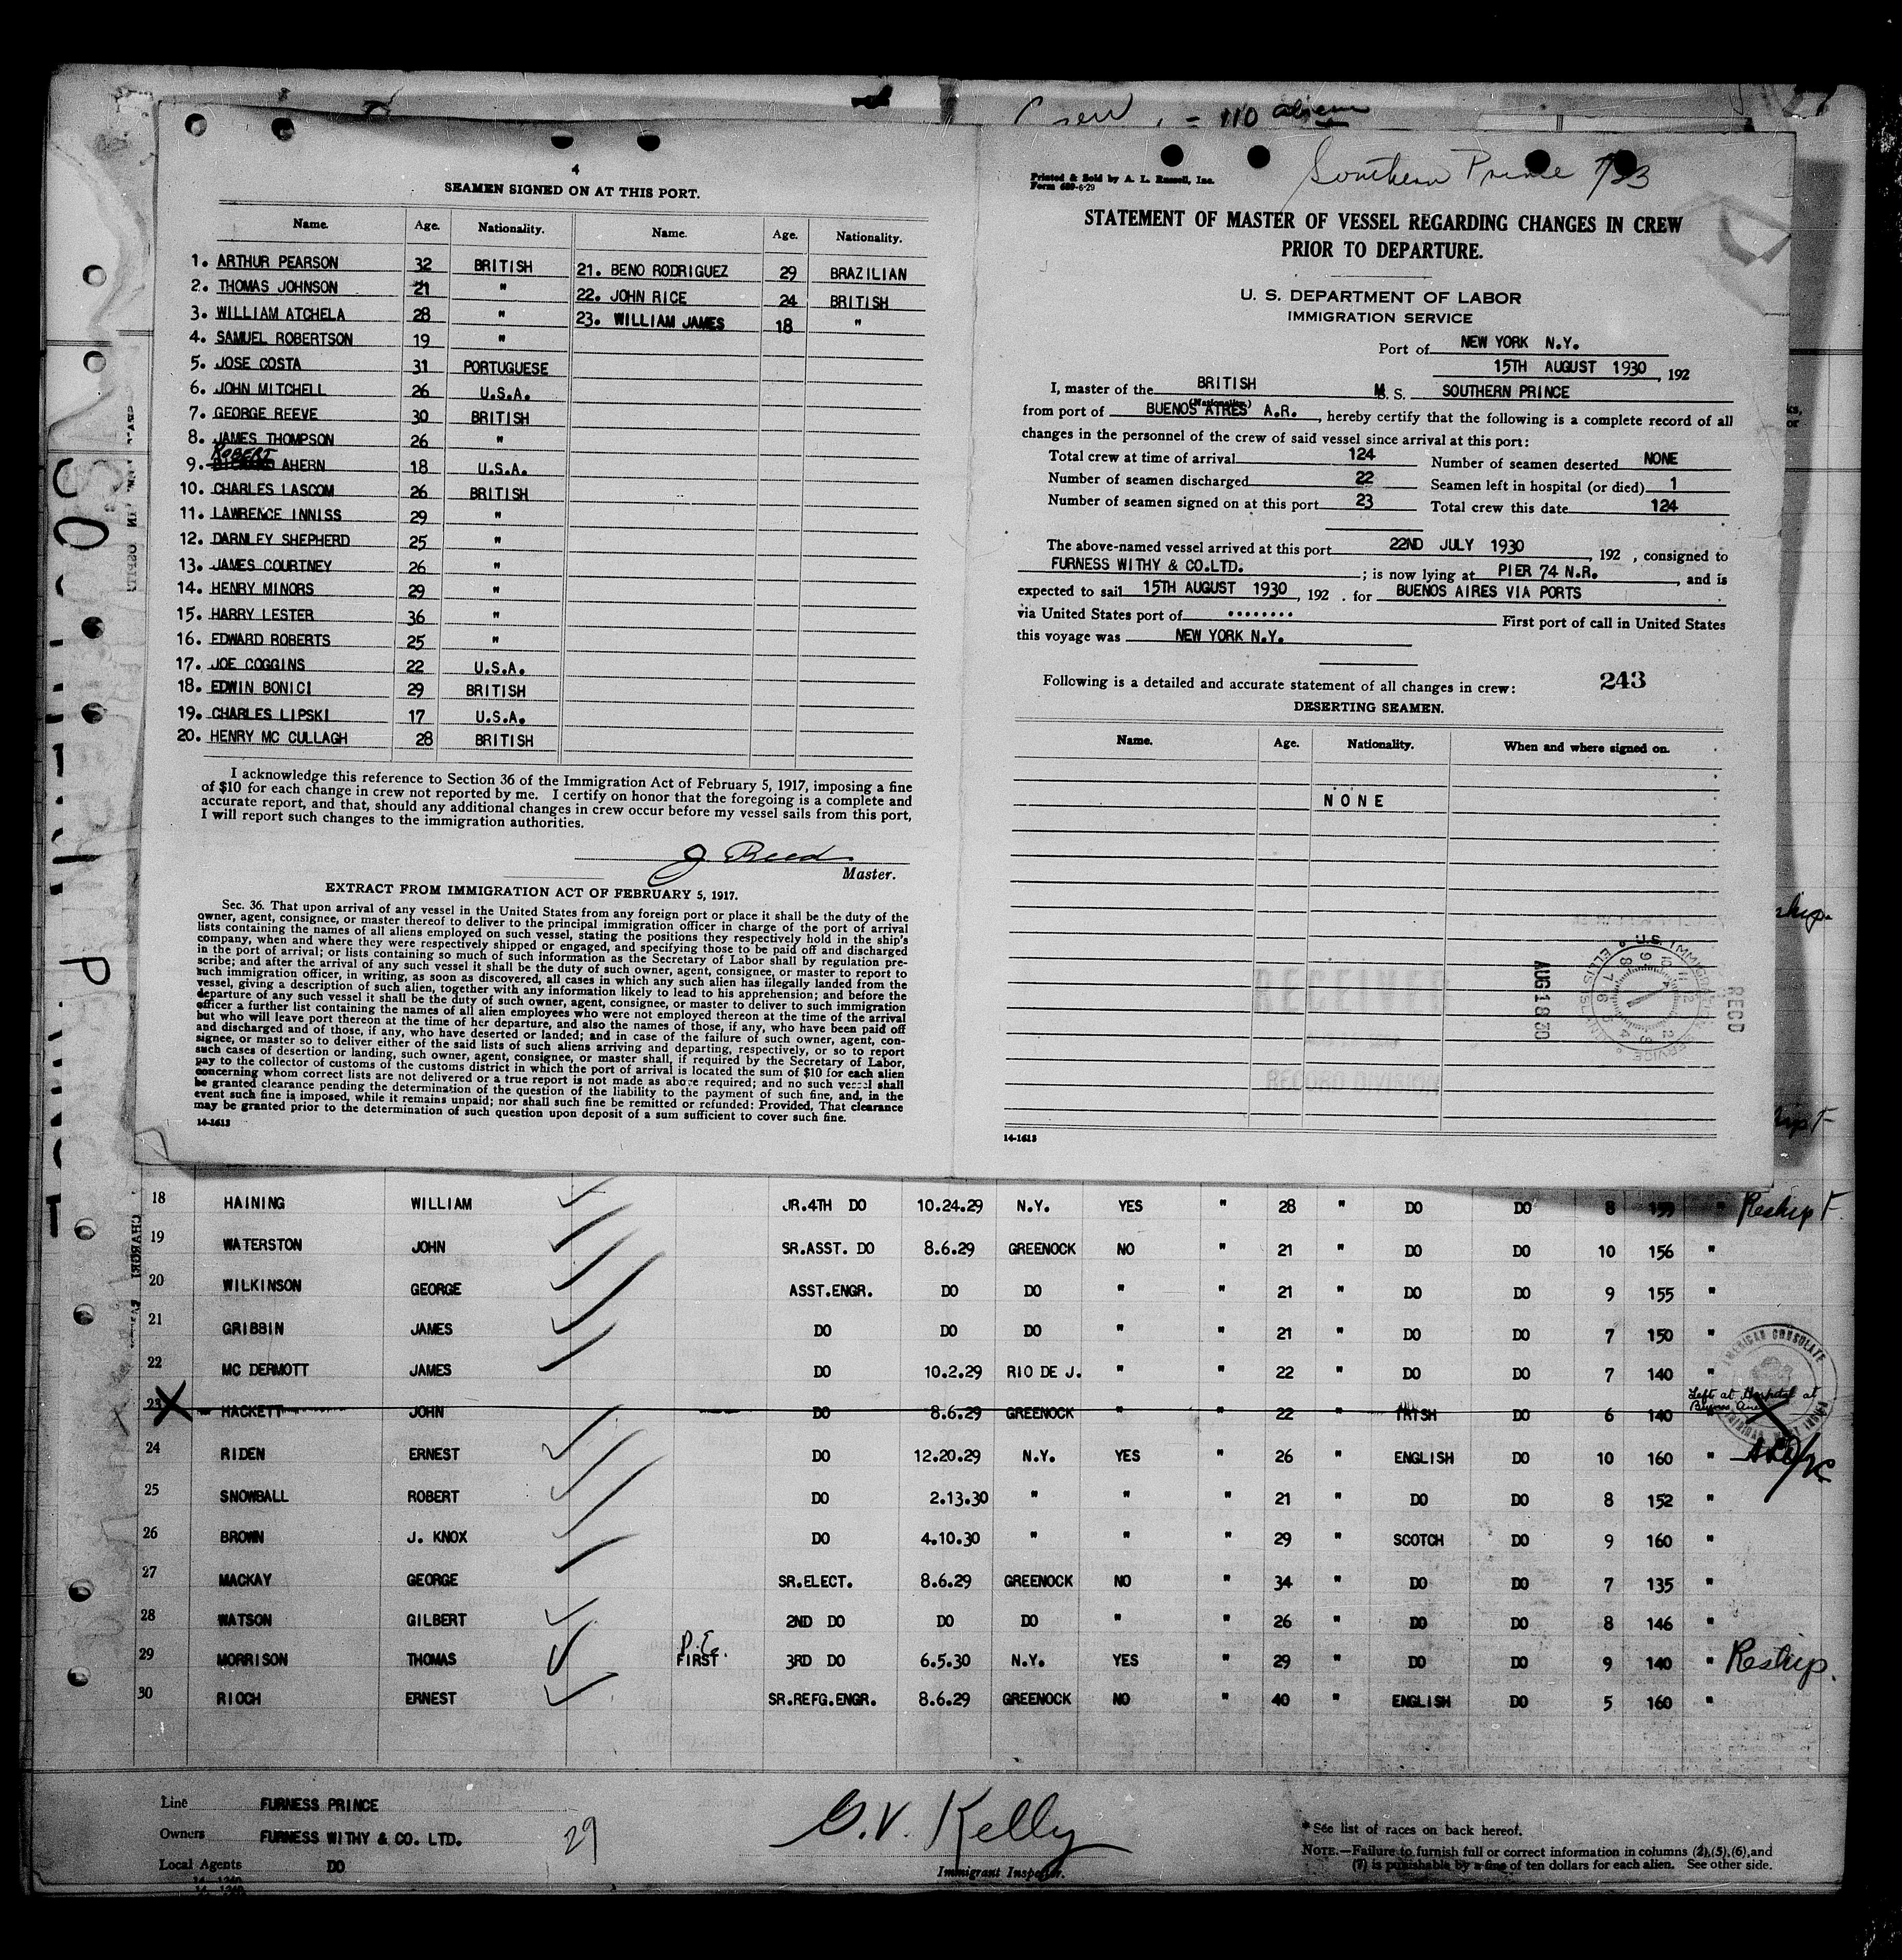 Crew = 110 alien
4
SEAMEN SIGNED ON AT THIS PORT.
Name. Age. Nationality. Name. Age. Nationality.
1. ARTHUR PEARSON 32 BRITISH 21. BENO RODRIGUEZ 29 BRAZILIAN
2. THOMAS JOHNSON 21 " 22. JOHN RICE 24 BRITISH
3. WILLIAM ATCHELA 28 " 23. WILLIAM JAMES 18 "
4. SAMUEL ROBERTSON 19 "
5. JOSE COSTA 31 PORTUGUESE
6. JOHN MITCHELL 26 U.S.A.
7. GEORGE REEVE 30 BRITISH
8. JAMES THOMPSON 26 "
9. ROBERT AHERN 18 U.S.A.
10. CHARLES LASCOM 26 BRITISH
11. LAWRENCE INNISS 29 "
12. DARNLEY SHEPHERD 25 "
13. JAMES COURTNEY 26 "
14. HENRY MINORS 29 "
15. HARRY LESTER 36 "
16. EDWARD ROBERTS 25 "
17. JOE COGGINS 22 U.S.A.
18. EDWIN BONICI 29 BRITISH
19. CHARLES LIPSKI 17 U.S.A.
20. HENRY MC CULLAGH 28 BRITISH
I acknowledge this reference to Section 36 of the Immigration Act of February 5, 1917, imposing a fine
of $10 for each change in crew not reported by me. I certify on honor that the foregoing is a complete and
accurate report, and that, should any additional changes in crew occur before my vessel sails from this port,
I will report such changes to the immigration authorities.
J. Reed
Master.
EXTRACT FROM IMMIGRATION ACT OF FEBRUARY 5, 1917.
Sec. 36. That upon arrival of any vessel in the United States from any foreign port or place it shall be the duty of the
owner, agent, consignee, or master thereof to deliver to the principal immigration officer in charge of the port of arrival
lists containing the names of all aliens employed on such vessel, stating the positions they respectively hold in the ship's
company, when and where they were respectively shipped or engaged, and specifying those to be paid off and discharged
in the port of arrival; or lists containing so much of such information as the Secretary of Labor shall by regulation pre-
scribe; and after the arrival of any such vessel it shall be the duty of such owner, agent, consignee, or master to report to
such immigration officer, in writing, as soon as discovered, all cases in which any such alien has illegally landed from the
vessel, giving a description of such alien, together with any information likely to lead to his apprehension; and before the
departure of any such vessel it shall be the duty of such owner, agent, consignee, or master to deliver to such immigration
officer a further list containing the names of all alien employees who were not employed thereon at the time of the arrival
but who will leave port thereon at the time of her departure, and also the names of those, if any, who have been paid off
and discharged and of those, if any, who have deserted or landed; and in case of the failure of such owner, agent, con-
signee, or master so to deliver either of the said lists of such aliens arriving and departing, respectively, or so to report
such cases of desertion or landing, such owner, agent, consignee, or master shall, if required by the Secretary of Labor,
pay to the collector of customs of the customs district in which the port of arrival is located the sum of $10 for each alien
concerning whom correct lists are not delivered or a true report is not made as above required; and no such vessel shall
be granted clearance pending the determination of the question of the liability to the payment of such fine, and, in the
event such fine is imposed, while it remains unpaid; nor shall such fine be remitted or refunded: Provided, That clearance
may be granted prior to the determination of such question upon deposit of a sum sufficient to cover such fine.
14-1613
Printed & Sold by A. L. Russell, Inc.
Form 689-6-29
Southern Prince 7/33
STATEMENT OF MASTER OF VESSEL REGARDING CHANGES IN CREW
PRIOR TO DEPARTURE.
U. S. DEPARTMENT OF LABOR
IMMIGRATION SERVICE
Port of NEW YORK N.Y.
15TH AUGUST 1930, 192
I, master of the BRITISH M. S. SOUTHERN PRINCE
(Nationality.)
from port of BUENOS AIRES A.R., hereby certify that the following is a complete record of all
changes in the personnel of the crew of said vessel since arrival at this port:
Total crew at time of arrival 124 Number of seamen deserted NONE
Number of seamen discharged 22 Seamen left in hospital (or died) 1
Number of seamen signed on at this port 23 Total crew this date 124
The above-named vessel arrived at this port 22ND JULY 1930, 192 , consigned to
FURNESS WITHY & CO.LTD. ; is now lying at PIER 74 N.R., and is
expected to sail 15TH AUGUST 1930, 192 . for BUENOS AIRES VIA PORTS
via United States port of ........ First port of call in United States
this voyage was NEW YORK N.Y.
Following is a detailed and accurate statement of all changes in crew: 243
DESERTING SEAMEN.
Name. Age. Nationality. When and where signed on.
NONE
RECEIVED
RECORD DIVISION
AUG 18 30
U.S. IMMIGRATION SERVICE ELLIS ISLAND
RECD
14-1613
18 HAINING WILLIAM JR.4TH DO 10.24.29 N.Y. YES " 28 " DO DO 8 " Reship F.
19 WATERSTON JOHN SR.ASST. DO 8.6.29 GREENOCK NO " 21 " DO DO 10 156 "
20 WILKINSON GEORGE ASST.ENGR. DO DO " " 21 " DO DO 9 155 "
21 GRIBBIN JAMES DO DO DO " " 21 " DO DO 7 150 "
22 MC DERMOTT JAMES DO 10.2.29 RIO DE J. " " 22 " DO DO 7 140 "
23 HACKETT JOHN DO 8.6.29 GREENOCK " " 22 " IRISH DO 6 140 Left at Hospital at
Buenos Aires
24 RIDEN ERNEST DO 12.20.29 N.Y. YES " 26 " ENGLISH DO 10 160 "
25 SNOWBALL ROBERT DO 2.13.30 " " " 21 " DO DO 8 152 "
26 BROWN J. KNOX DO 4.10.30 " " " 29 " SCOTCH DO 9 160 "
27 MACKAY GEORGE SR.ELECT. 8.6.29 GREENOCK NO " 34 " DO DO 7 135 "
28 WATSON GILBERT 2ND DO DO DO " " 26 " DO DO 8 146 "
29 MORRISON THOMAS FIRST 3RD DO 6.5.30 N.Y. YES " 29 " DO DO 9 140 " Reship.
30 RIOCH ERNEST SR.REFG.ENGR. 8.6.29 GREENOCK NO " 40 " ENGLISH DO 5 160 "
AMERICAN CONSULATE
Line FURNESS PRINCE
Owners FURNESS WITHY & CO. LTD.
Local Agents DO
29
G.V. Kelly
Immigrant Inspector.
* See list of races on back hereof.
NOTE.—Failure to furnish full or correct information in columns (2),(5),(6),and
(7) is punishable by a fine of ten dollars for each alien. See other side.